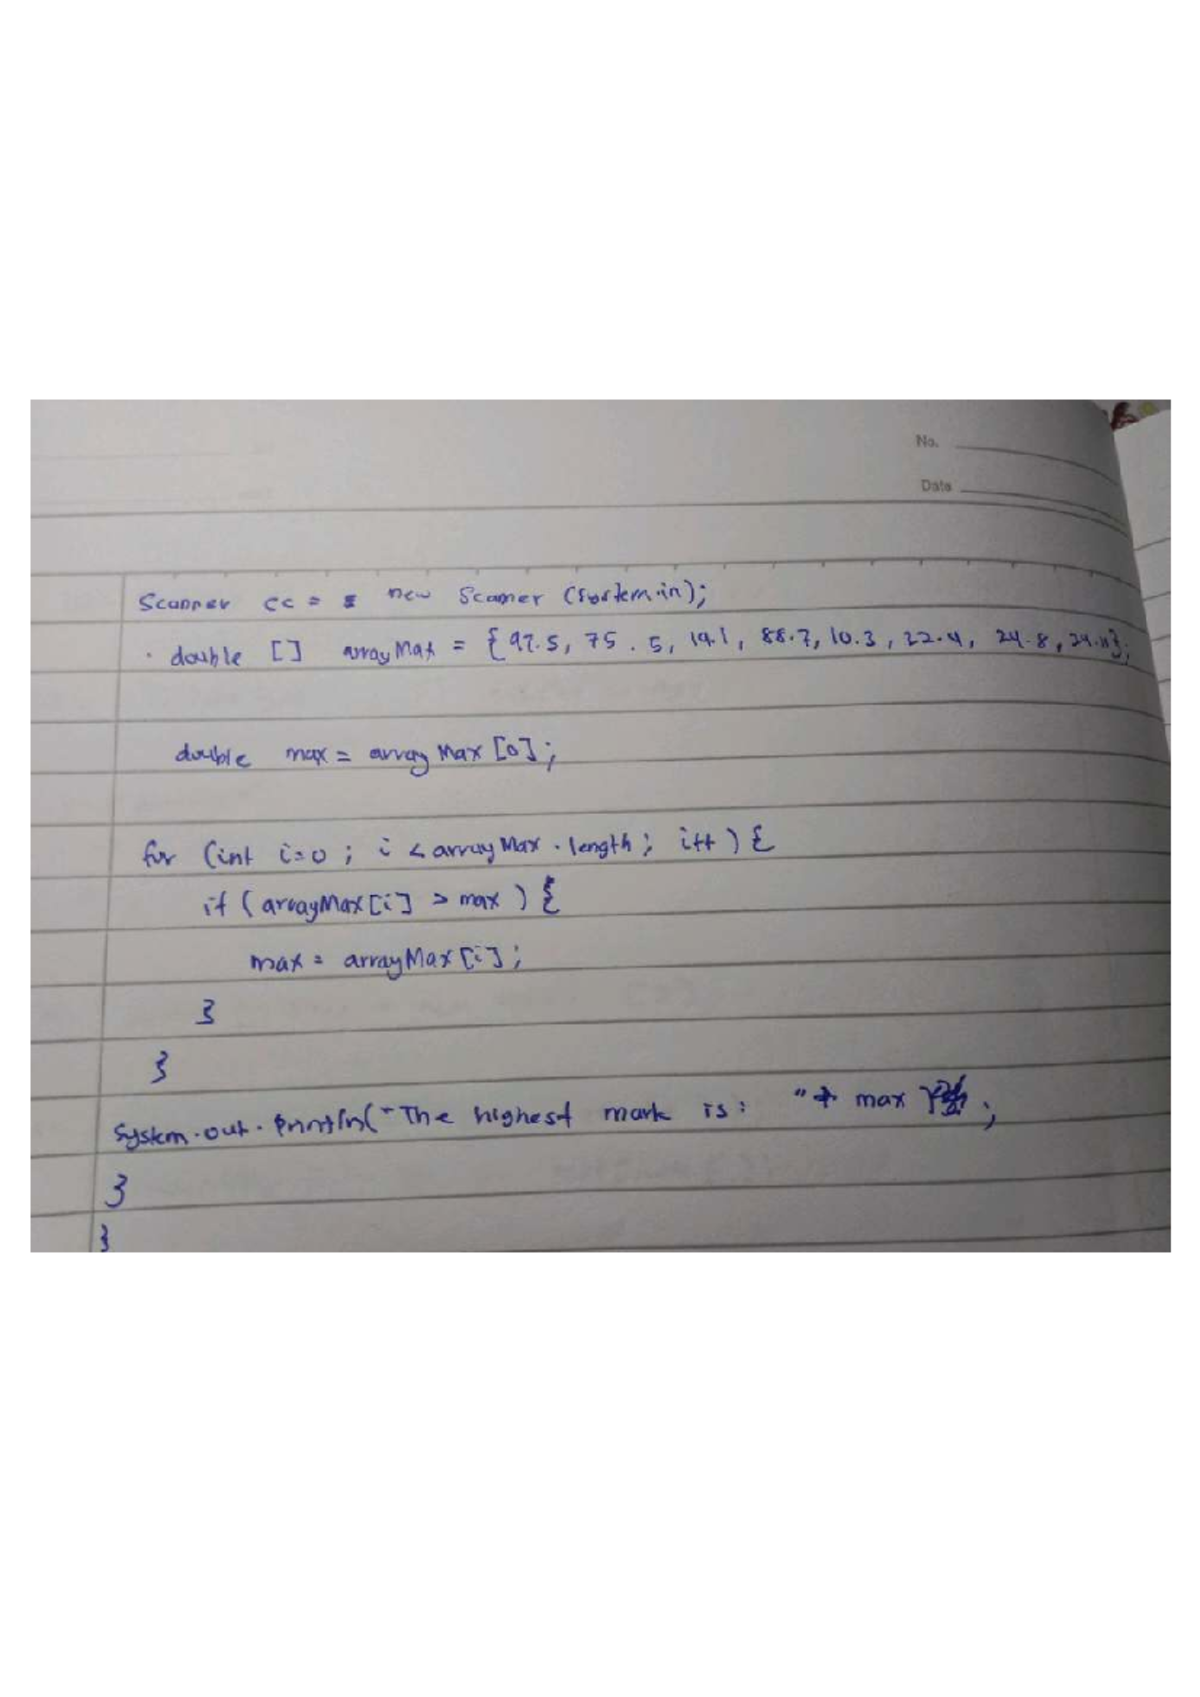 No.
Date
Scanner cc = new Scanner (System.in);
double [] arrayMax = {97.5, 75.5, 19.1, 88.7, 10.3, 22.4, 24.8,
double max = arrayMax [0];
for (int i=0; i < arrayMax.length; i++) {
if (arrayMax[i] > max) {
max = arrayMax[i];
}
}
System.out.println("The highest mark is: "+ max );
}
}